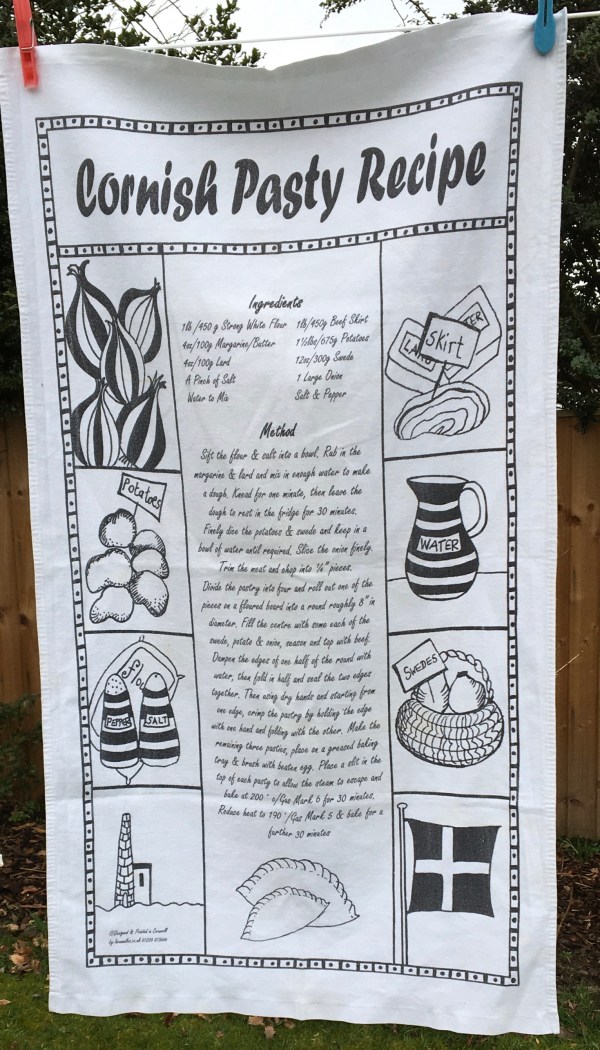 Cornish Pasty Recipe
Ingredients
1lb/450 g Strong White Flour 1lb/450g Beef Skirt
4oz/100g Margarine/Butter 1½lbs/675g Potatoes
4oz/100g Lard 12oz/300g Swede
A Pinch of Salt 1 Large Onion
Water to Mix Salt & Pepper
Method
Sift the flour & salt into a bowl. Rub in the
margarine & lard and mix in enough water to make
a dough. Knead for one minute, then leave the
dough to rest in the fridge for 30 minutes.
Finely dice the potatoes & swede and keep in a
bowl of water until required. Slice the onion finely.
Trim the meat and chop into ¼" pieces.
Divide the pastry into four and roll out one of the
pieces on a floured board into a round roughly 8" in
diameter. Fill the centre with some each of the
swede, potato & onion, season and top with beef.
Dampen the edges of one half of the round with
water, then fold in half and seal the two edges
together. Then using dry hands and starting from
one edge, crimp the pastry by holding the edge
with one hand and folding with the other. Make the
remaining three pasties, place on a greased baking
tray & brush with beaten egg. Place a slit in the
top of each pasty to allow the steam to escape and
bake at 200 ° c/Gas Mark 6 for 30 minutes.
Reduce heat to 190 °/Gas Mark 5 & bake for a
further 30 minutes
Potatoes
PEPPER
SALT
LARD
Skirt
WATER
SWEDES
©Designed & Printed in Cornwall
by